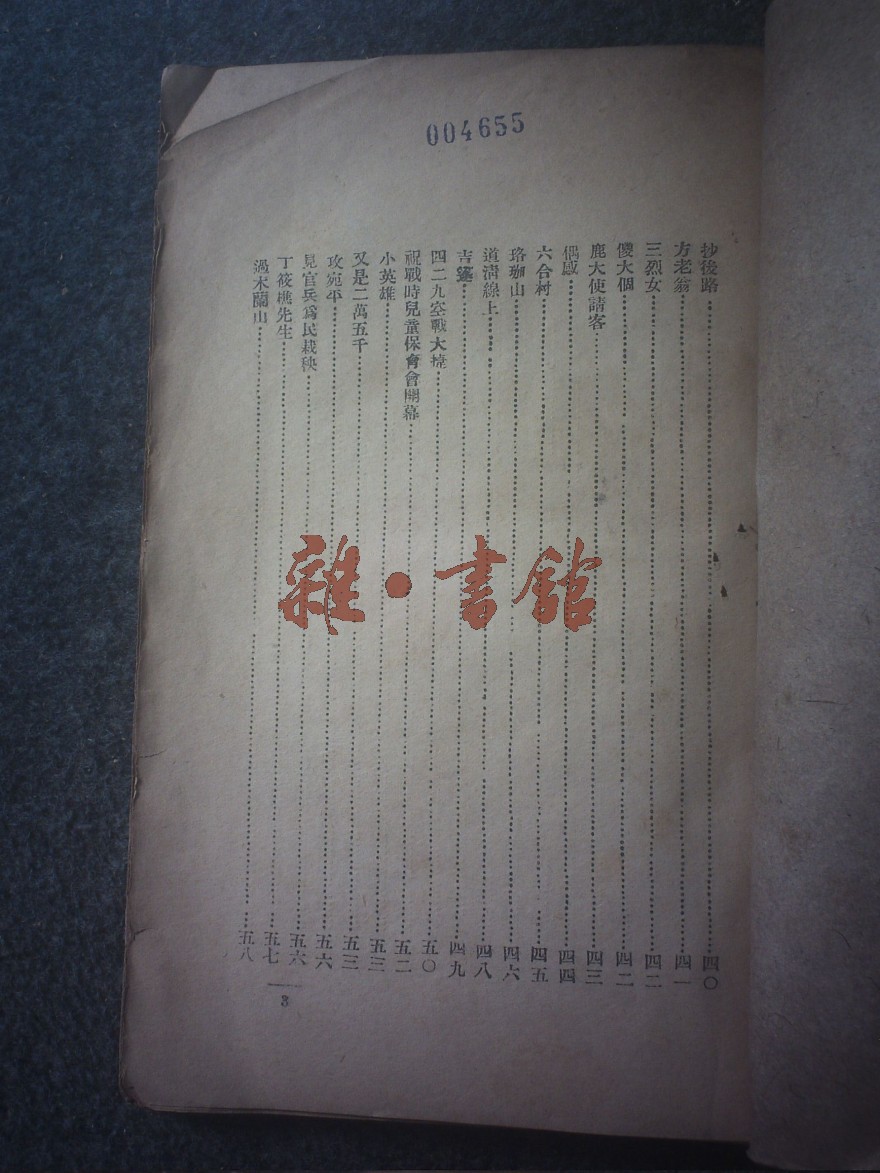 004655
抄後路 四〇
方老翁 四一
三烈女 四二
傻大個 四二
鹿大使請客 四三
偶感 四四
六合村 四五
珞珈山 四六
道清線上 四八
吉鴻 四九
四二九空戰大捷 五〇
祝戰時兒童保育會開幕 五二
小英雄 五三
又是二萬五千 五三
攻宛平 五六
見官兵爲民栽秧 五六
丁筱樵先生 五七
過木蘭山 五八
3
雜·書館